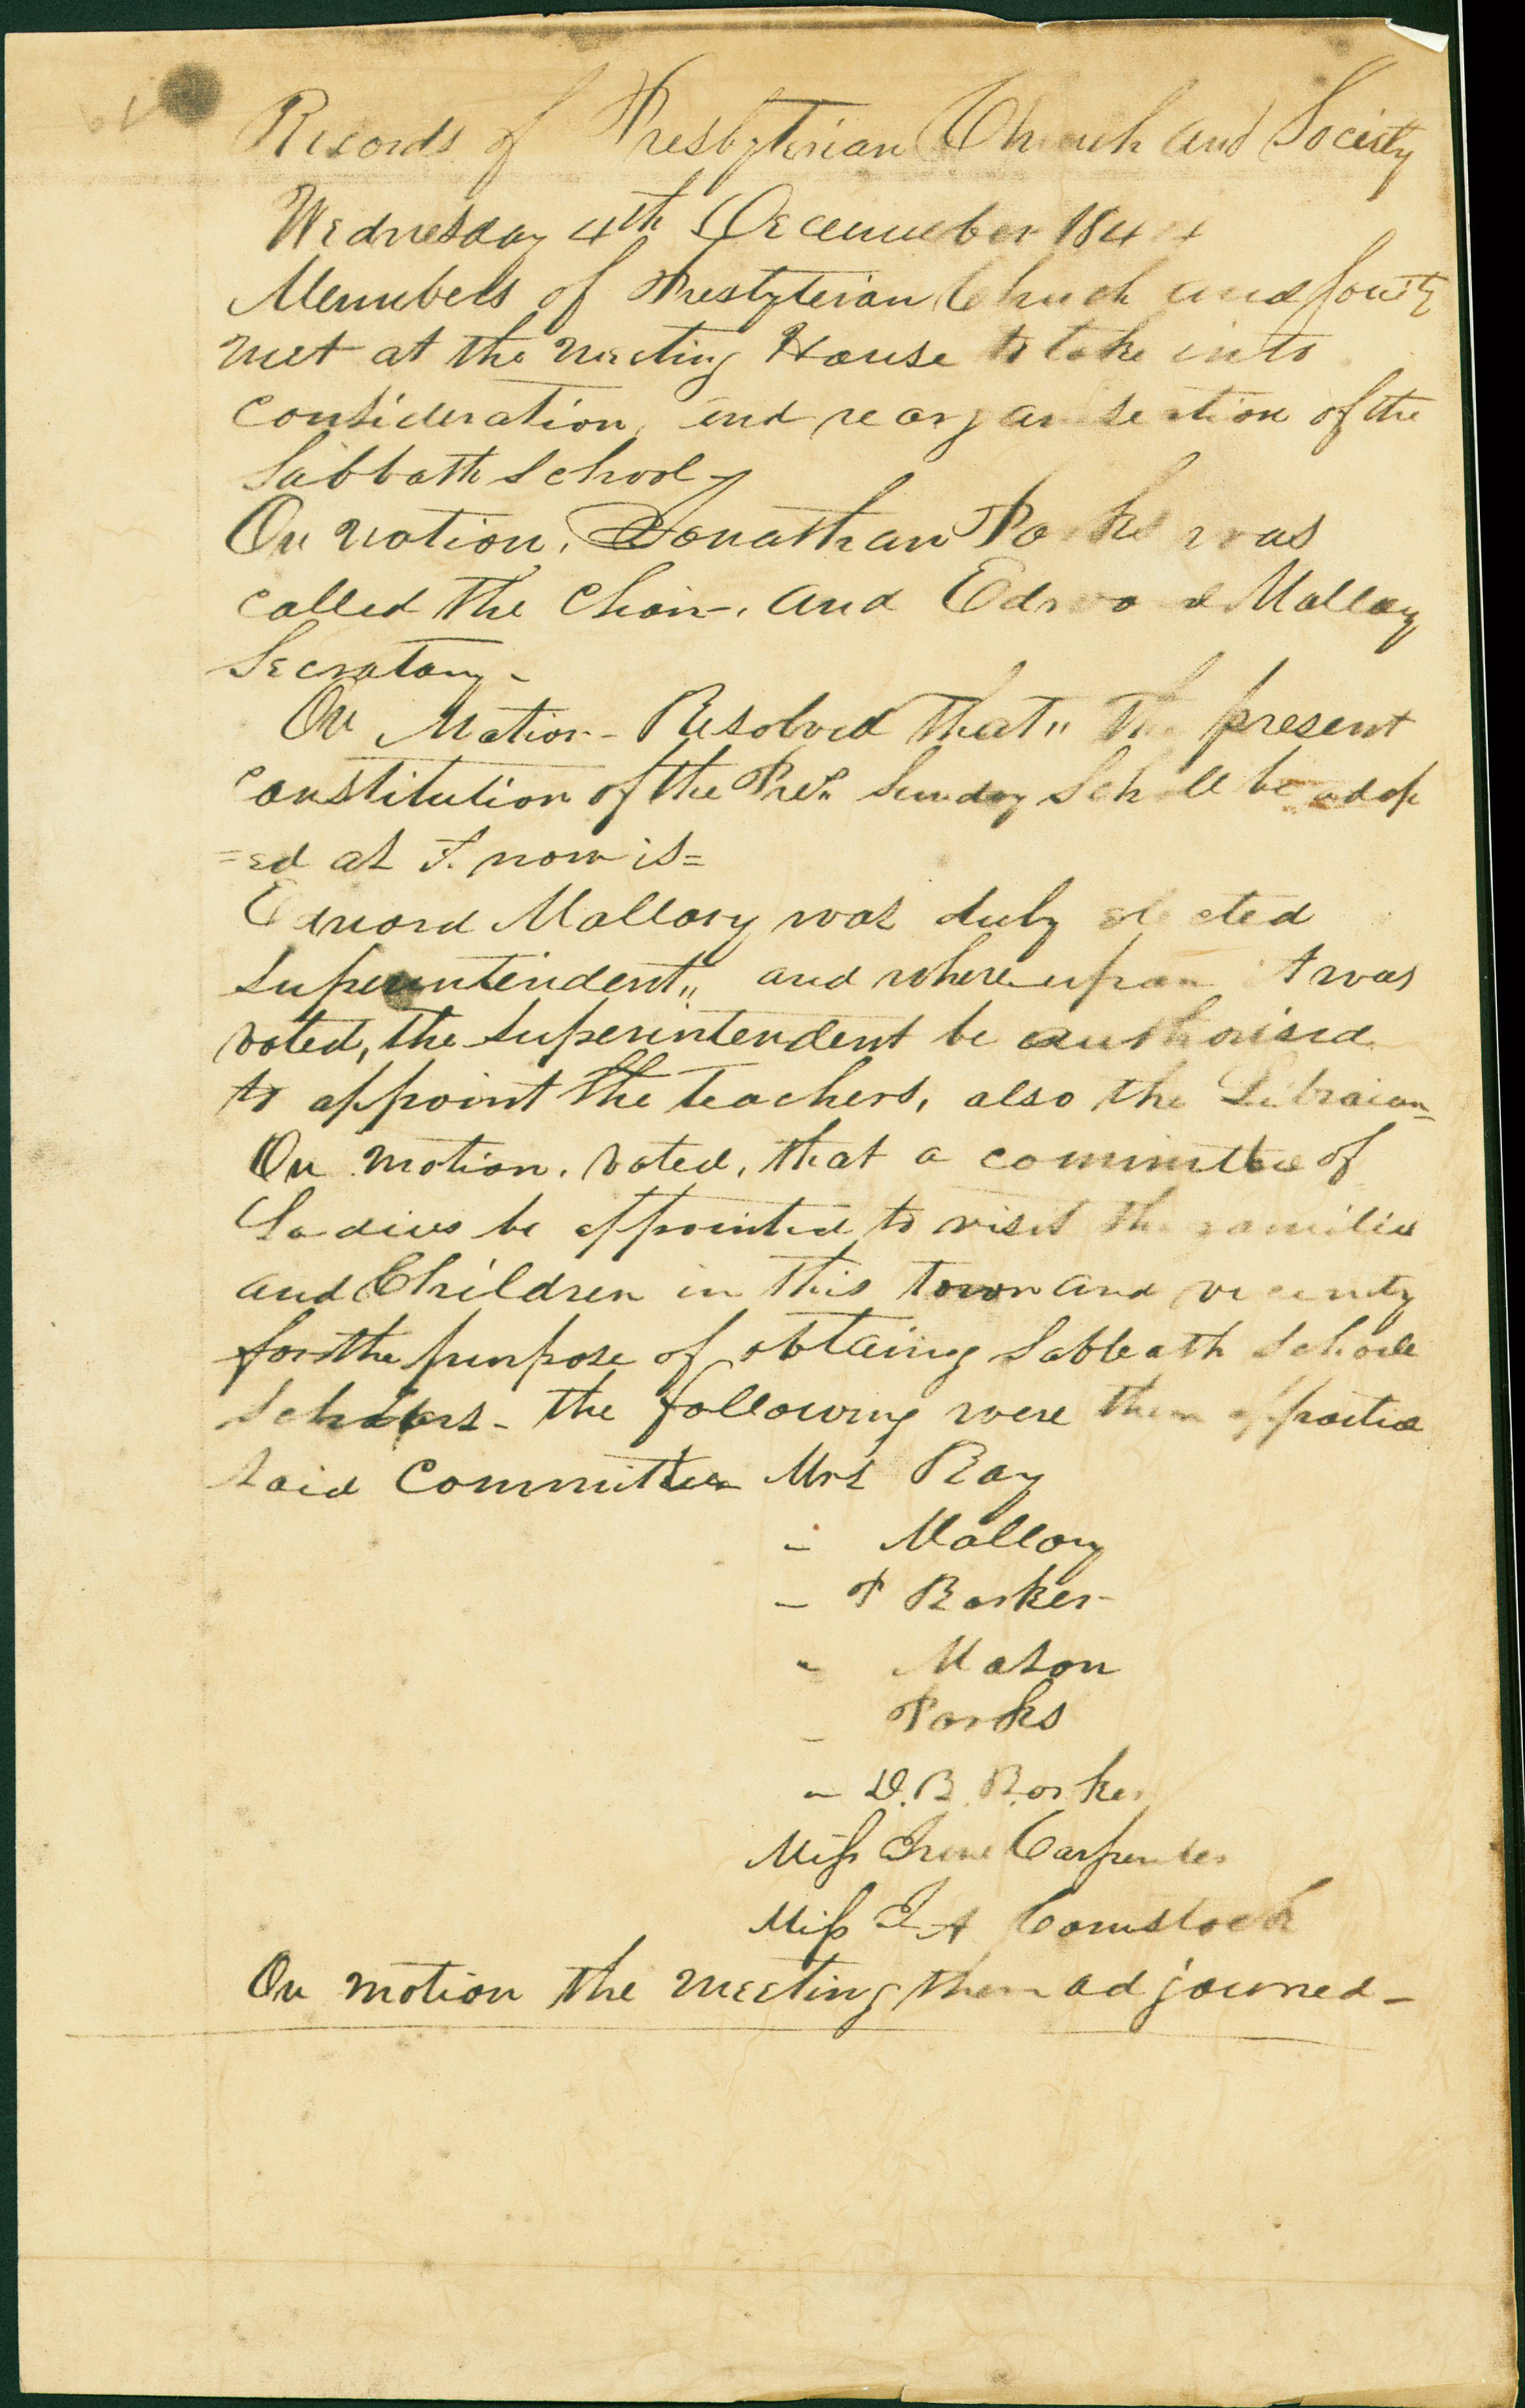 Records of Presbyterian Church and Society
Wednesday 4th December 1844
Members of Presbyterian Church and Society
met at the meeting House to take into
consideration, and reorganisation of the
Sabbath School,
On motion, Jonathan Parks was
called the Chair, and Edward Mallory
Secratary -
On Motion - Resolved that " The present
constitution of the Pres. Sunday School be adop
=ed as it now is=
Edward Mallory was duly elected
superintendent" and whereupon it was
voted, the superintendent be authorised
to appoint the teachers, also the Libraian
On motion, voted, that a committee of
Ladies be appointed to visit the families
and Children in this town and vicinity
for the purpose of obtaing Sabbath School
Scholars - the following were then appointed
said Committee Mrs Ray
" Mallory
" P Barker
" Mason
" Parks
" D. B. Barker
Miss Irene Carpenter
Miss I A Comstock
On motion the meeting then adjourned -